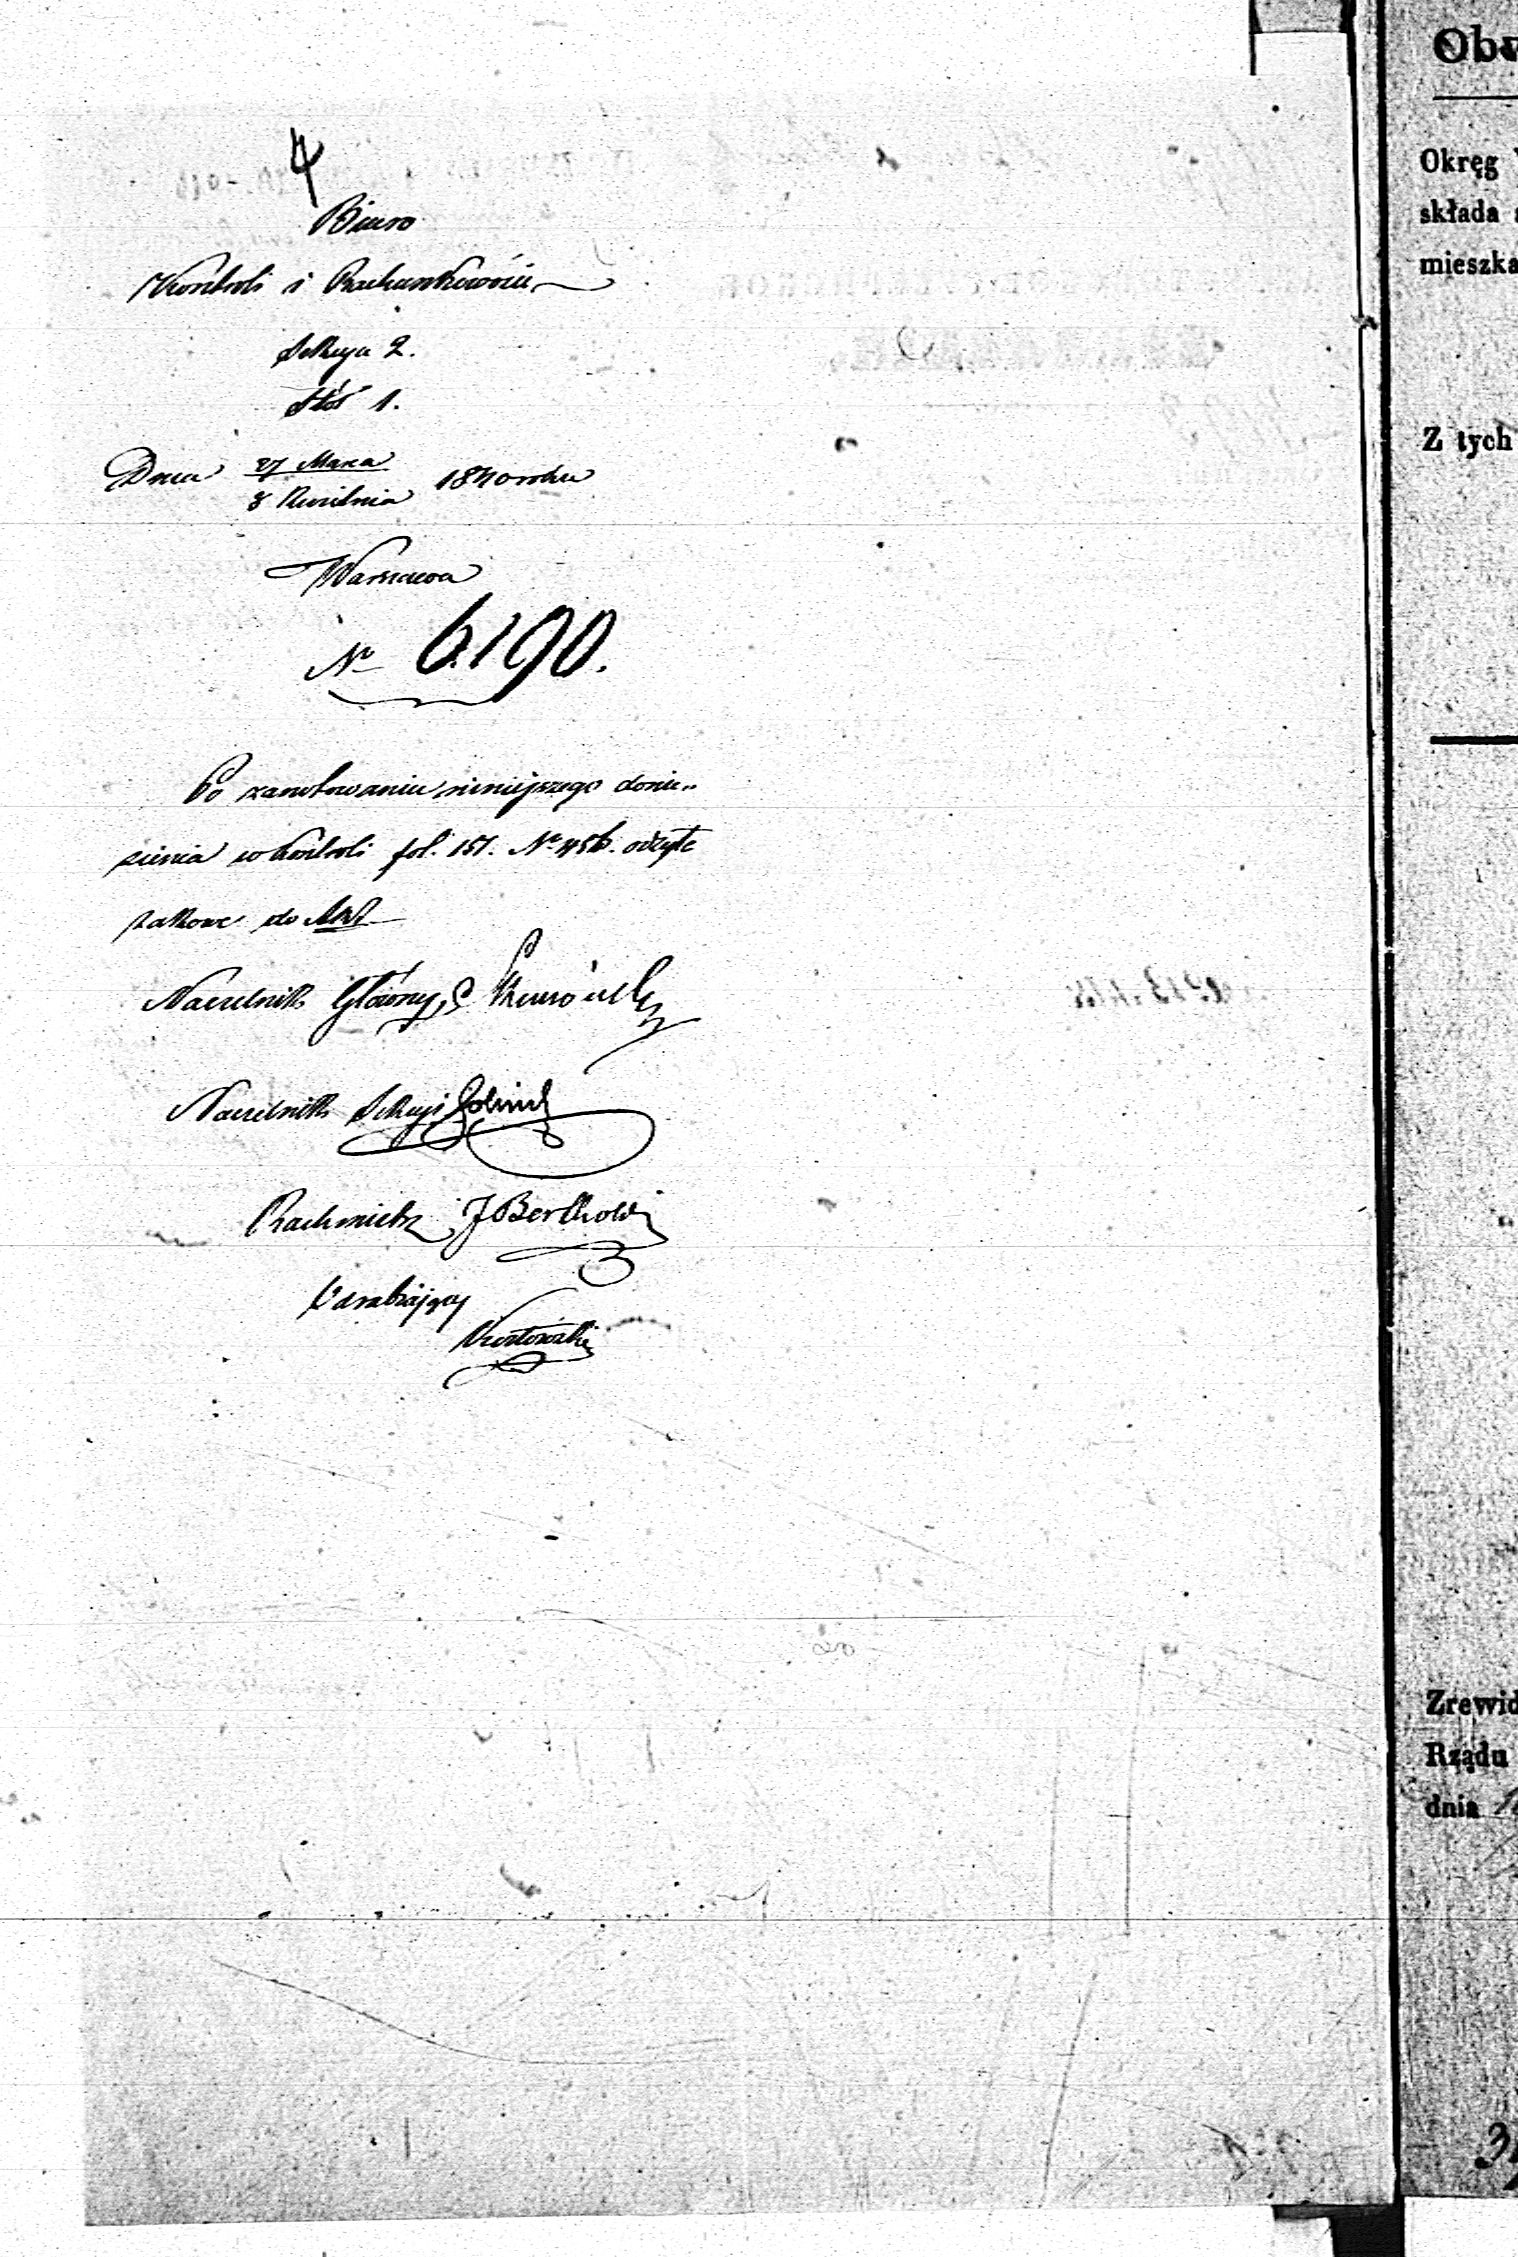 4
Biuro
Kontroli i Rachunkowości
Sekcya 2.
Stół 1.
Dnia 27 Marca / 8 Kwietnia 1840 roku
Warszawa
Nr 6190.
Po zanotowaniu niniejszego donie„
sienia w kontroli fol. 151. Nr 456. odsyła
takowe do
Naczelnik Główny
Naczelnik Sekcyi
Rachmistrz J Berthold
Odrabiający
Obw
Okręg
składa
mieszka
Z tych
Zrewid
Rządu
dnia